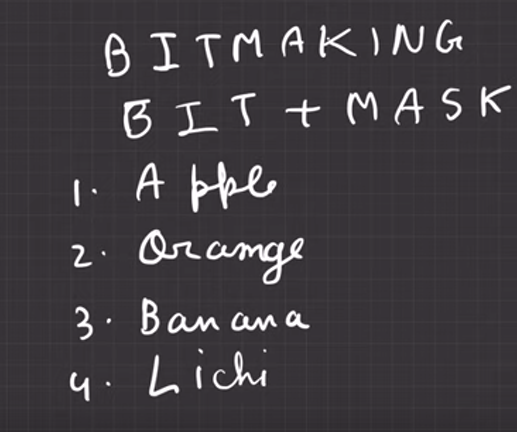 BITMAKING
BIT + MASK
1. Apple
2. Orange
3. Banana
4. Lichi